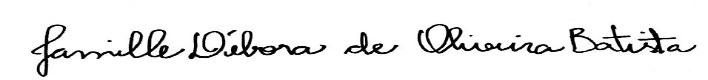 Jamille Débora de Oliveira Batista